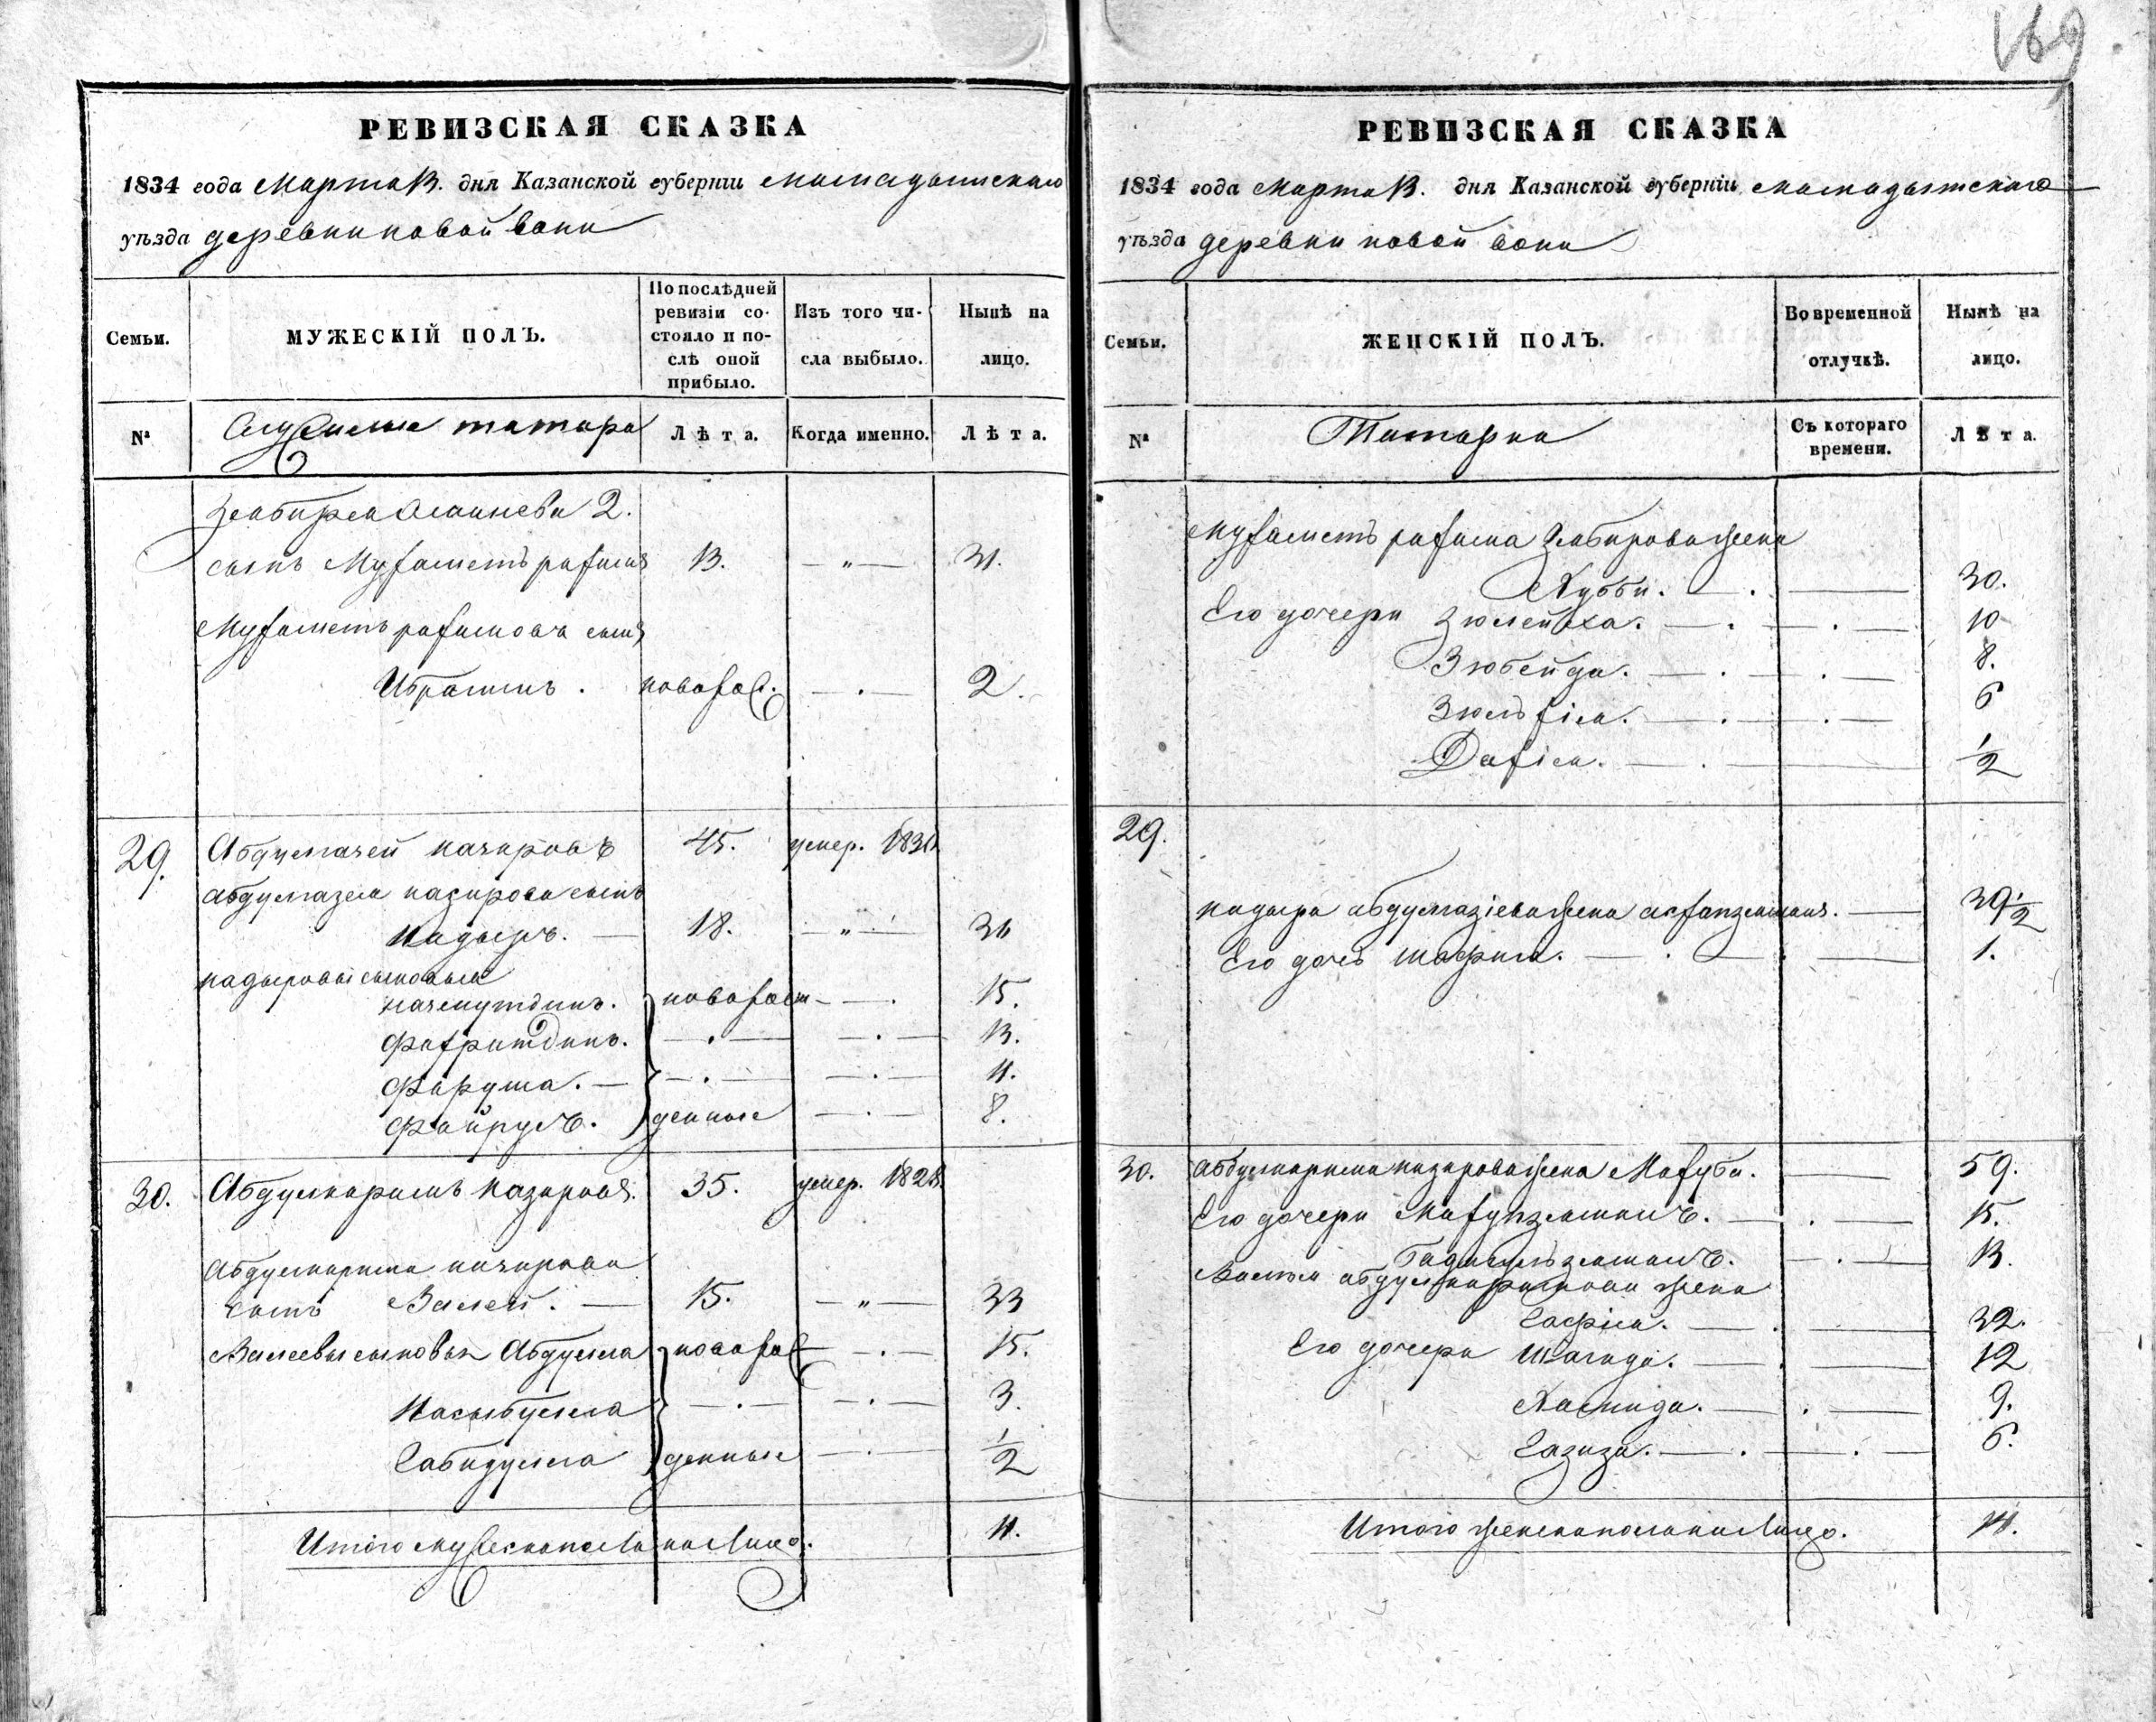 169
РЕВИЗСКАЯ СКАЗКА
1834 года Марта 13. дня Казанской губернiи Мамадышскаго
уѣзда деревни новой
Семьи.
МУЖЕСКIЙ ПОЛЪ.
По послѣдней ревизiи состояло и послѣ оной прибыло.
Изъ того числа выбыло.
Нынѣ на лицо.
№
татара
Лѣта.
Когда именно.
Лѣта.
2.
сынъ Мухаметъ рахимъ 13. — „ — 31.
Мухаметъ рахимовъ сынъ
Ибрагимъ. новорож. — . — 2.
29. назировъ 45. умер. 1831.
назирова сынъ
Кадыръ. — 18. — „ — 34
кадыровы сыновья
новорож — . 15.
Фахритдинъ. — . — — . — 13.
— . — — . — 11.
денные — . — 8.
30. Абдулкаримъ Назировъ. 35. умер. 1828.
Абдулкарима назирова
сынъ Валей. — 15. — „ — 33
Валеевы сыновья Абдулла новорож — . — 15.
— . — — . — 3.
денные — . — 1/2
Итого мужеска пола на лицо. 11.
РЕВИЗСКАЯ СКАЗКА
1834 года Марта 13. дня Казанской губернiи Мамадышскаго
уѣзда деревни новой
Семьи.
ЖЕНСКIЙ ПОЛЪ.
Во временной отлучкѣ.
Нынѣ на лицо.
№
Татарки
Съ котораго времени.
Лѣта.
Мухаметъ рахима жена
Хубби. — . — 30.
Его дочери Зюлейха. — . — . — 10
Зюбейда. — . — . — 8.
— . — . — 6
— . — 1/2
29.
кадыра жена — 39 1/2
Его дочь — . — . — 1.
30. Абдулкарима назирова жена Махуби. — 59.
Его дочери — . — 15.
— . — 13.
Валея абдулкаримова жена
— . — 32.
Его дочери Шагида. — . — 12
Хамида. — . — 9.
Газиза. — . — . — 6.
Итого женска пола на лицо. 14.